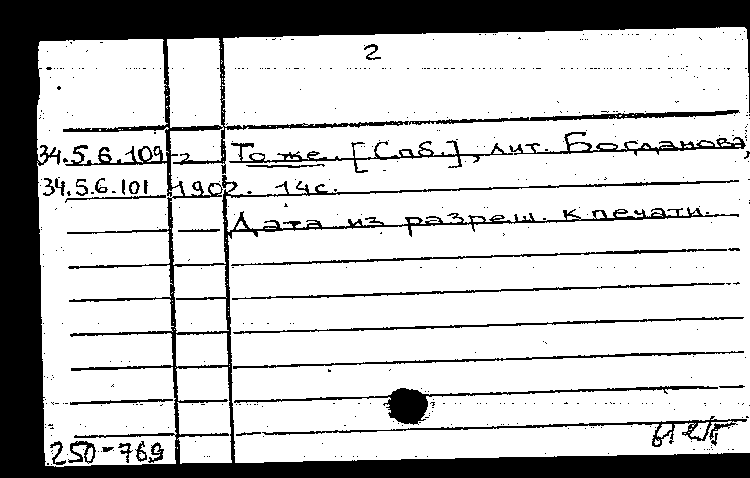 2
34.5.6.109-2 То же. [Спб.], лит. Богданова,
34.5.6.101 1902. 14с.
Дата из разреш. к печати.
250-769